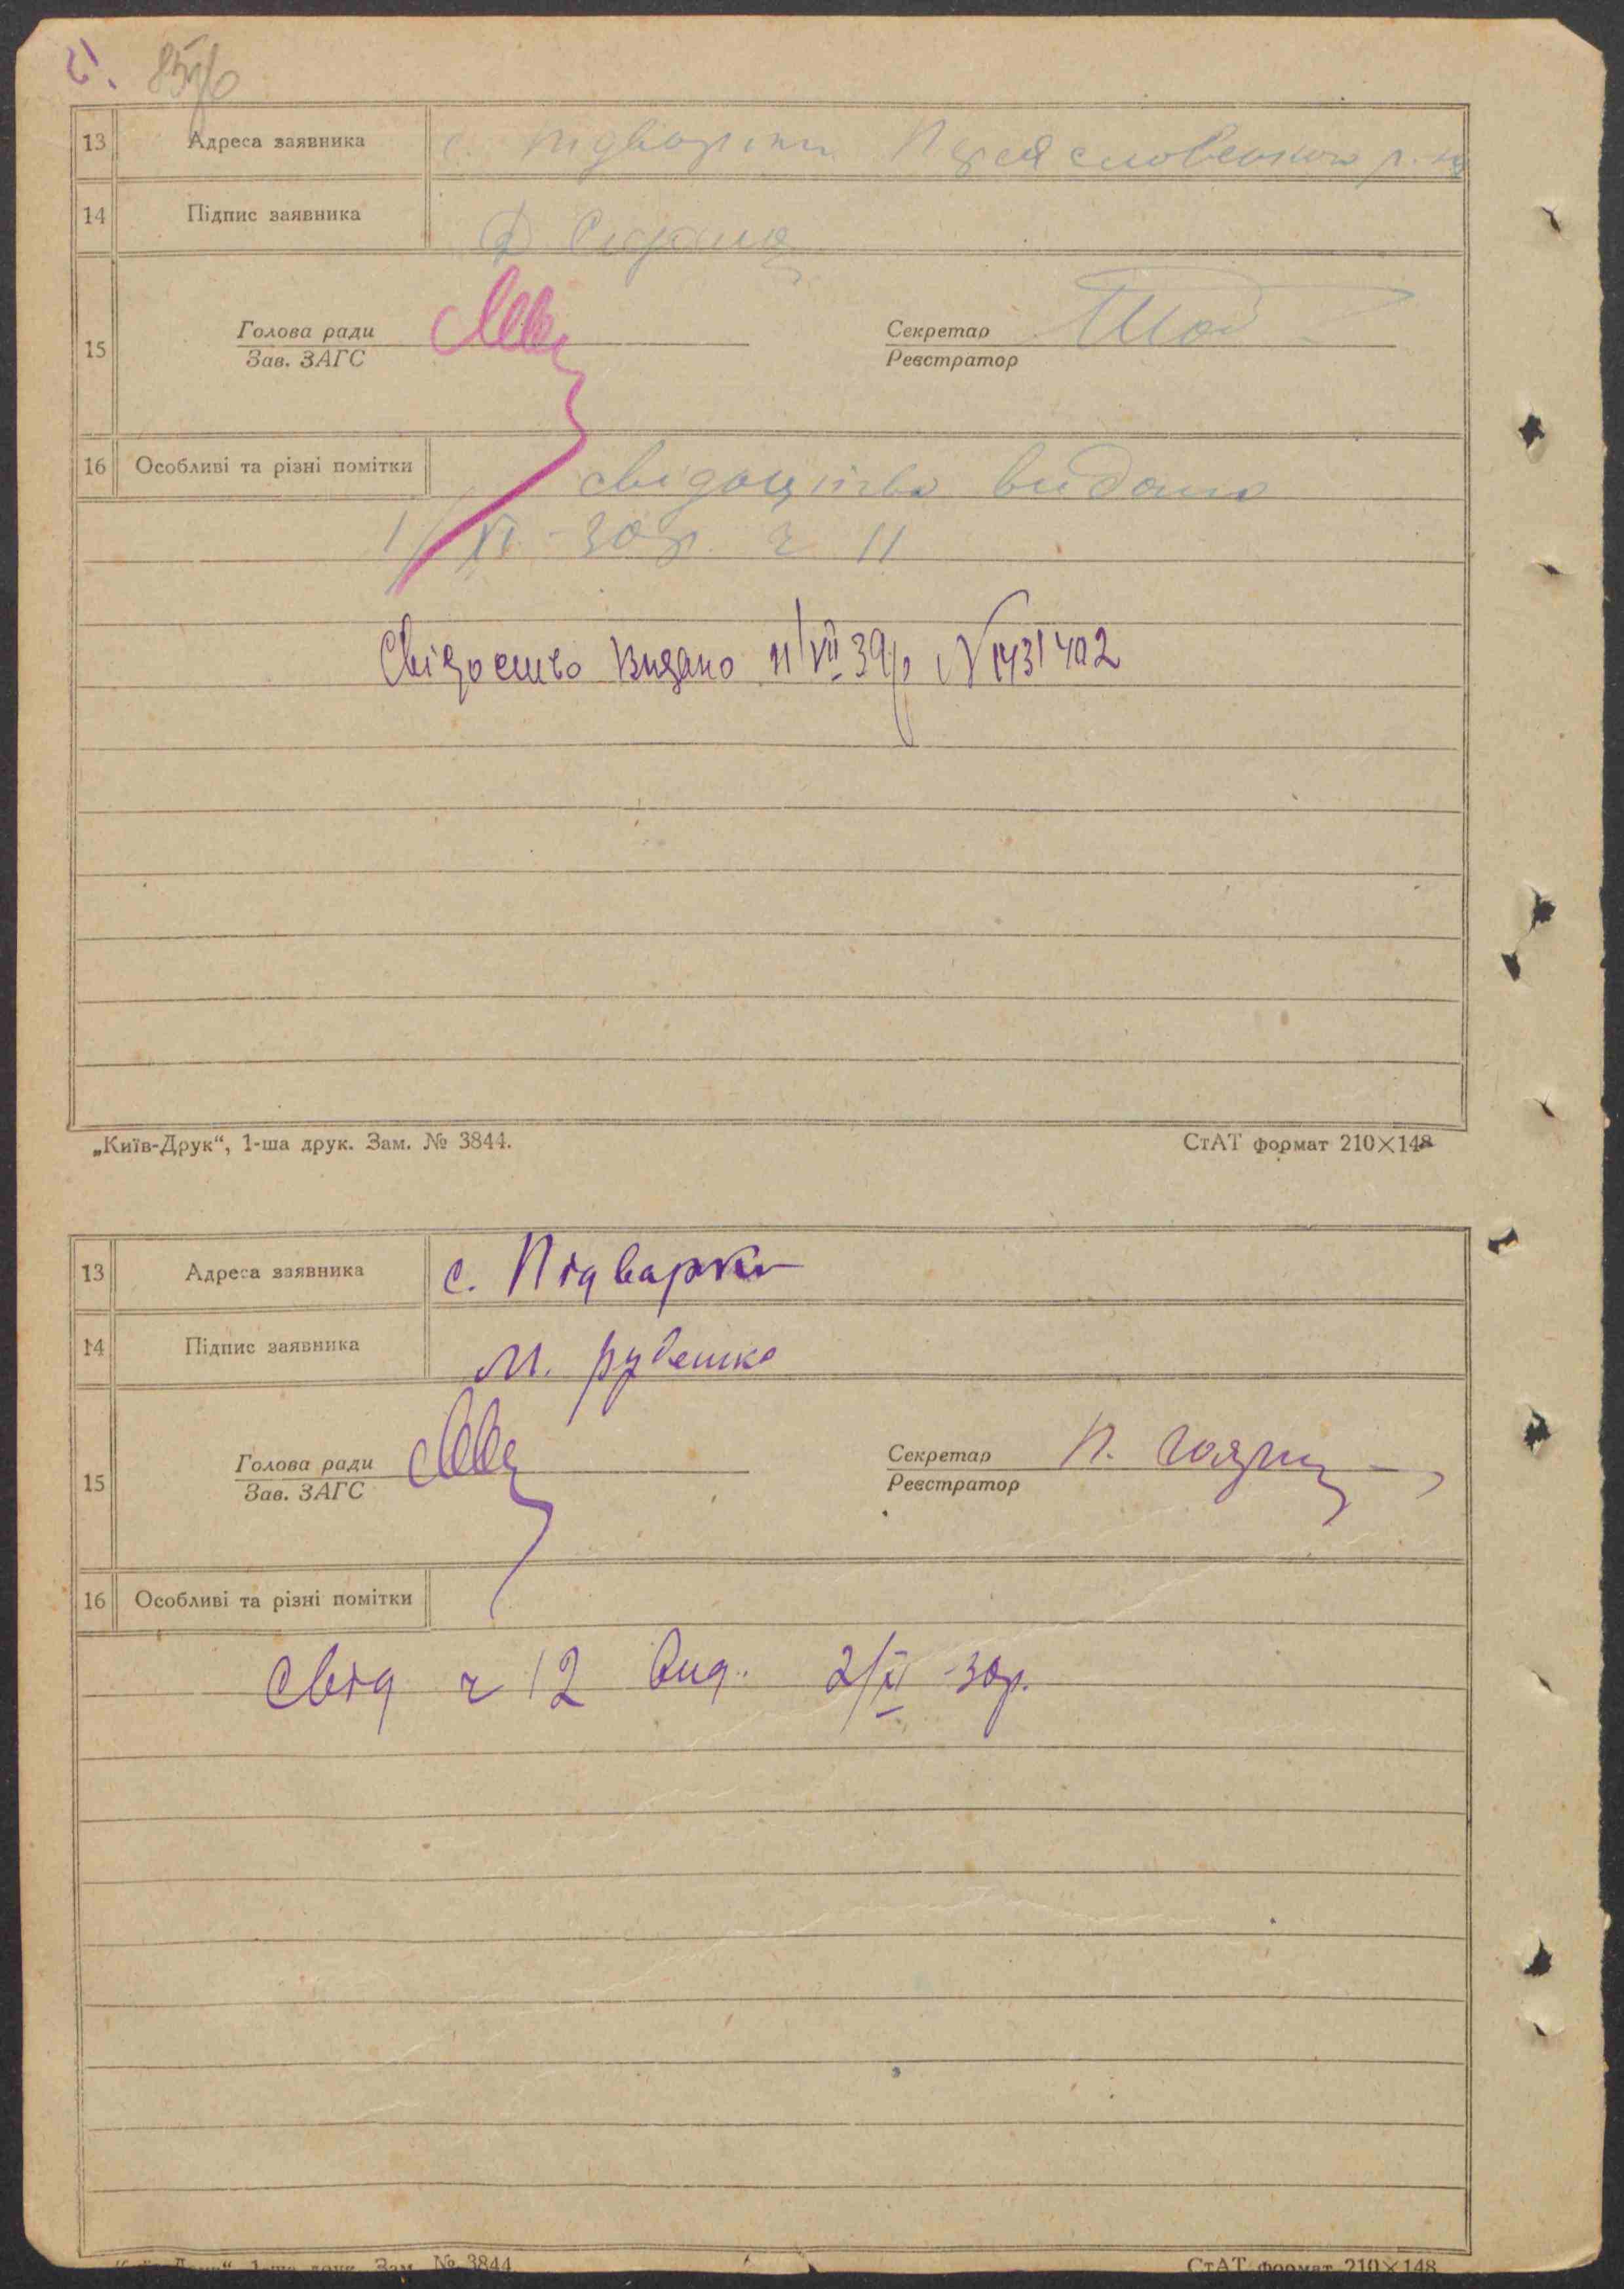 13 Адреса заявника с. Підварки Переяславського р-ну
14 Підпис заявника
15 Голова ради Секретар
Зав. ЗАГС Реєстратор
16 Особливі та різні помітки свідоцтво видано
1/VI-30р. ч 11
Свідоцтво видано 11/VII 39р N 1431402
„Київ-Друк“, 1-ша друк. Зам. № 3844. СтАТ формат 210×148
13 Адреса заявника с. Підварки
14 Підпис заявника М.
15 Голова ради Секретар П.
Зав. ЗАГС Реєстратор
16 Особливі та різні помітки
Свід ч 12 вид. 2/VI-30р.
„Київ-Друк“, 1-ша друк. Зам. № 3844 СтАТ формат 210×148